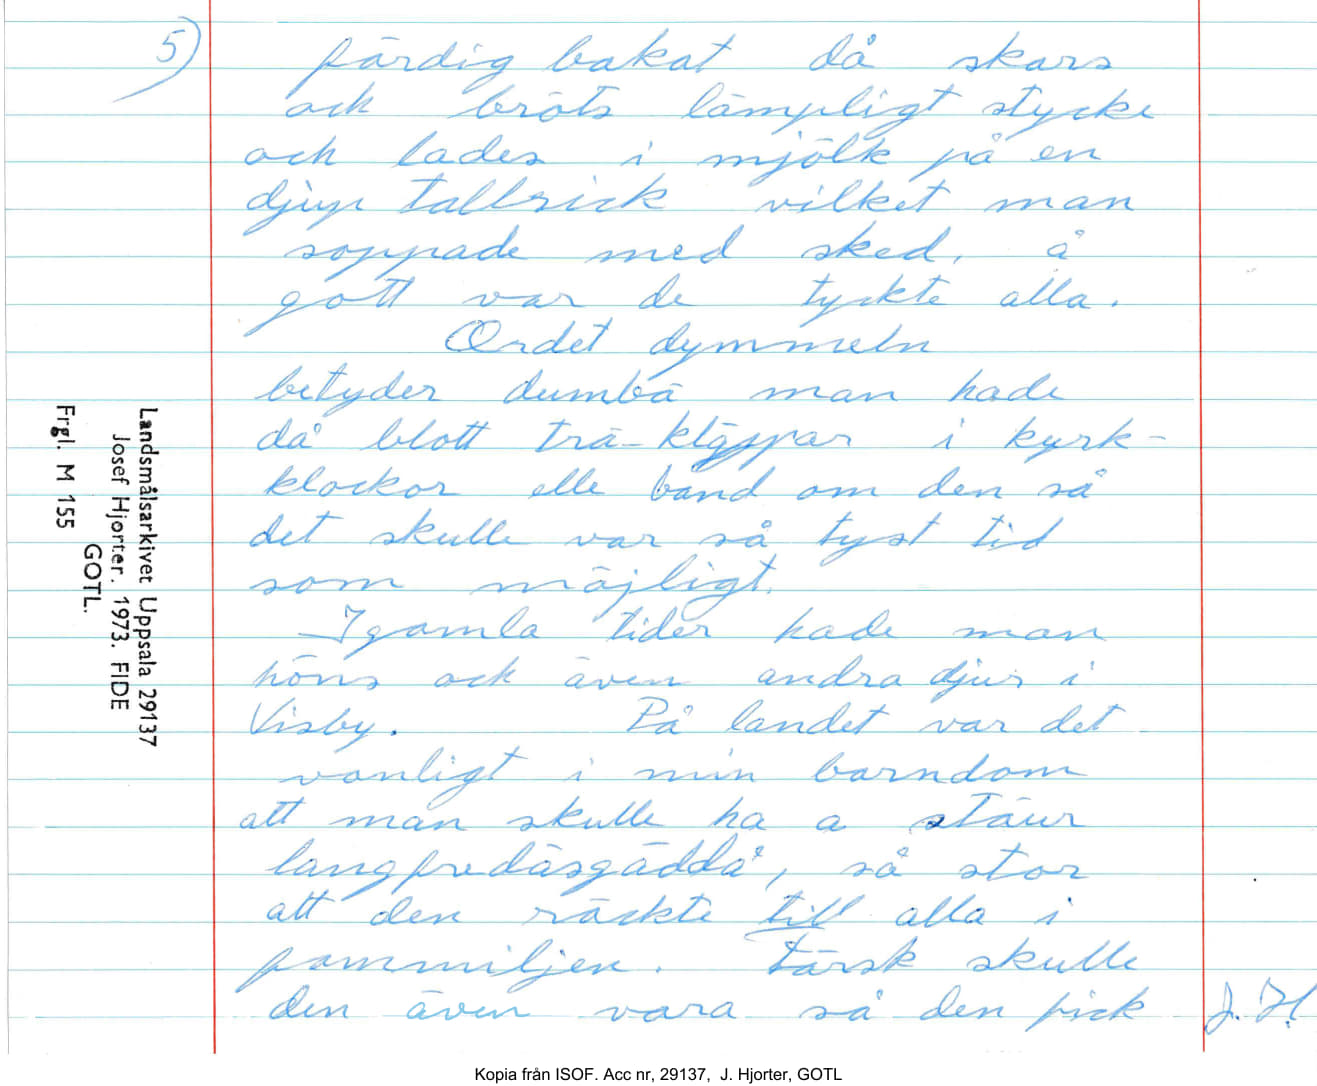 5)
färdig bakat då skars
och bröts lämpligt stycke
och lades i mjölk på en
djup tallrick vilket man
soppade med sked, å
gott var de tyckte alla.
Ordet dymmeln
betyder dumbä man hade
då blott trä-kläppar i kyrk-
klockor elle band om den så
det skulle var så tyst tid
som möjligt.
I gamla tider hade man
höns och även andra djur i
Visby. På landet var det
vanligt i min barndom
att man skulle ha a stäur
langfredäsgäddå, så stor
att den räckte till alla i
fammiljen. Färsk skulle
den även vara så den fick
J. H.
Landsmålsarkivet Uppsala 29137
Josef Hjorter. 1973. FIDE
GOTL.
Frgl. M 155
Kopia från ISOF. Acc nr, 29137, J. Hjorter, GOTL